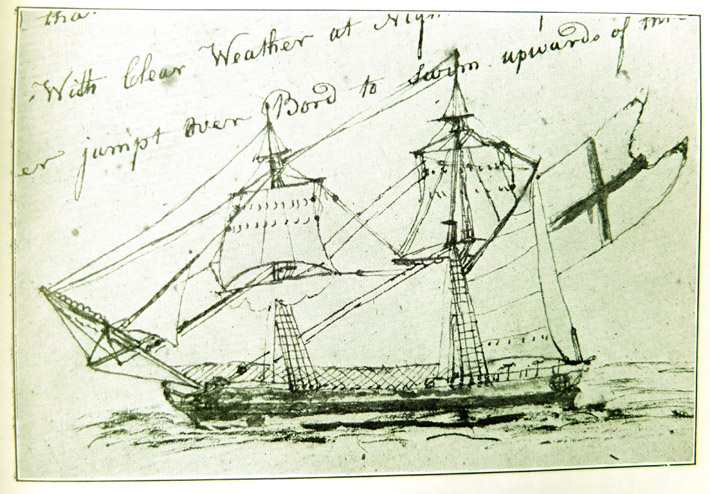 tha
With Clear Weather at Nig
er jumpt Over Bord to Swim upwards of